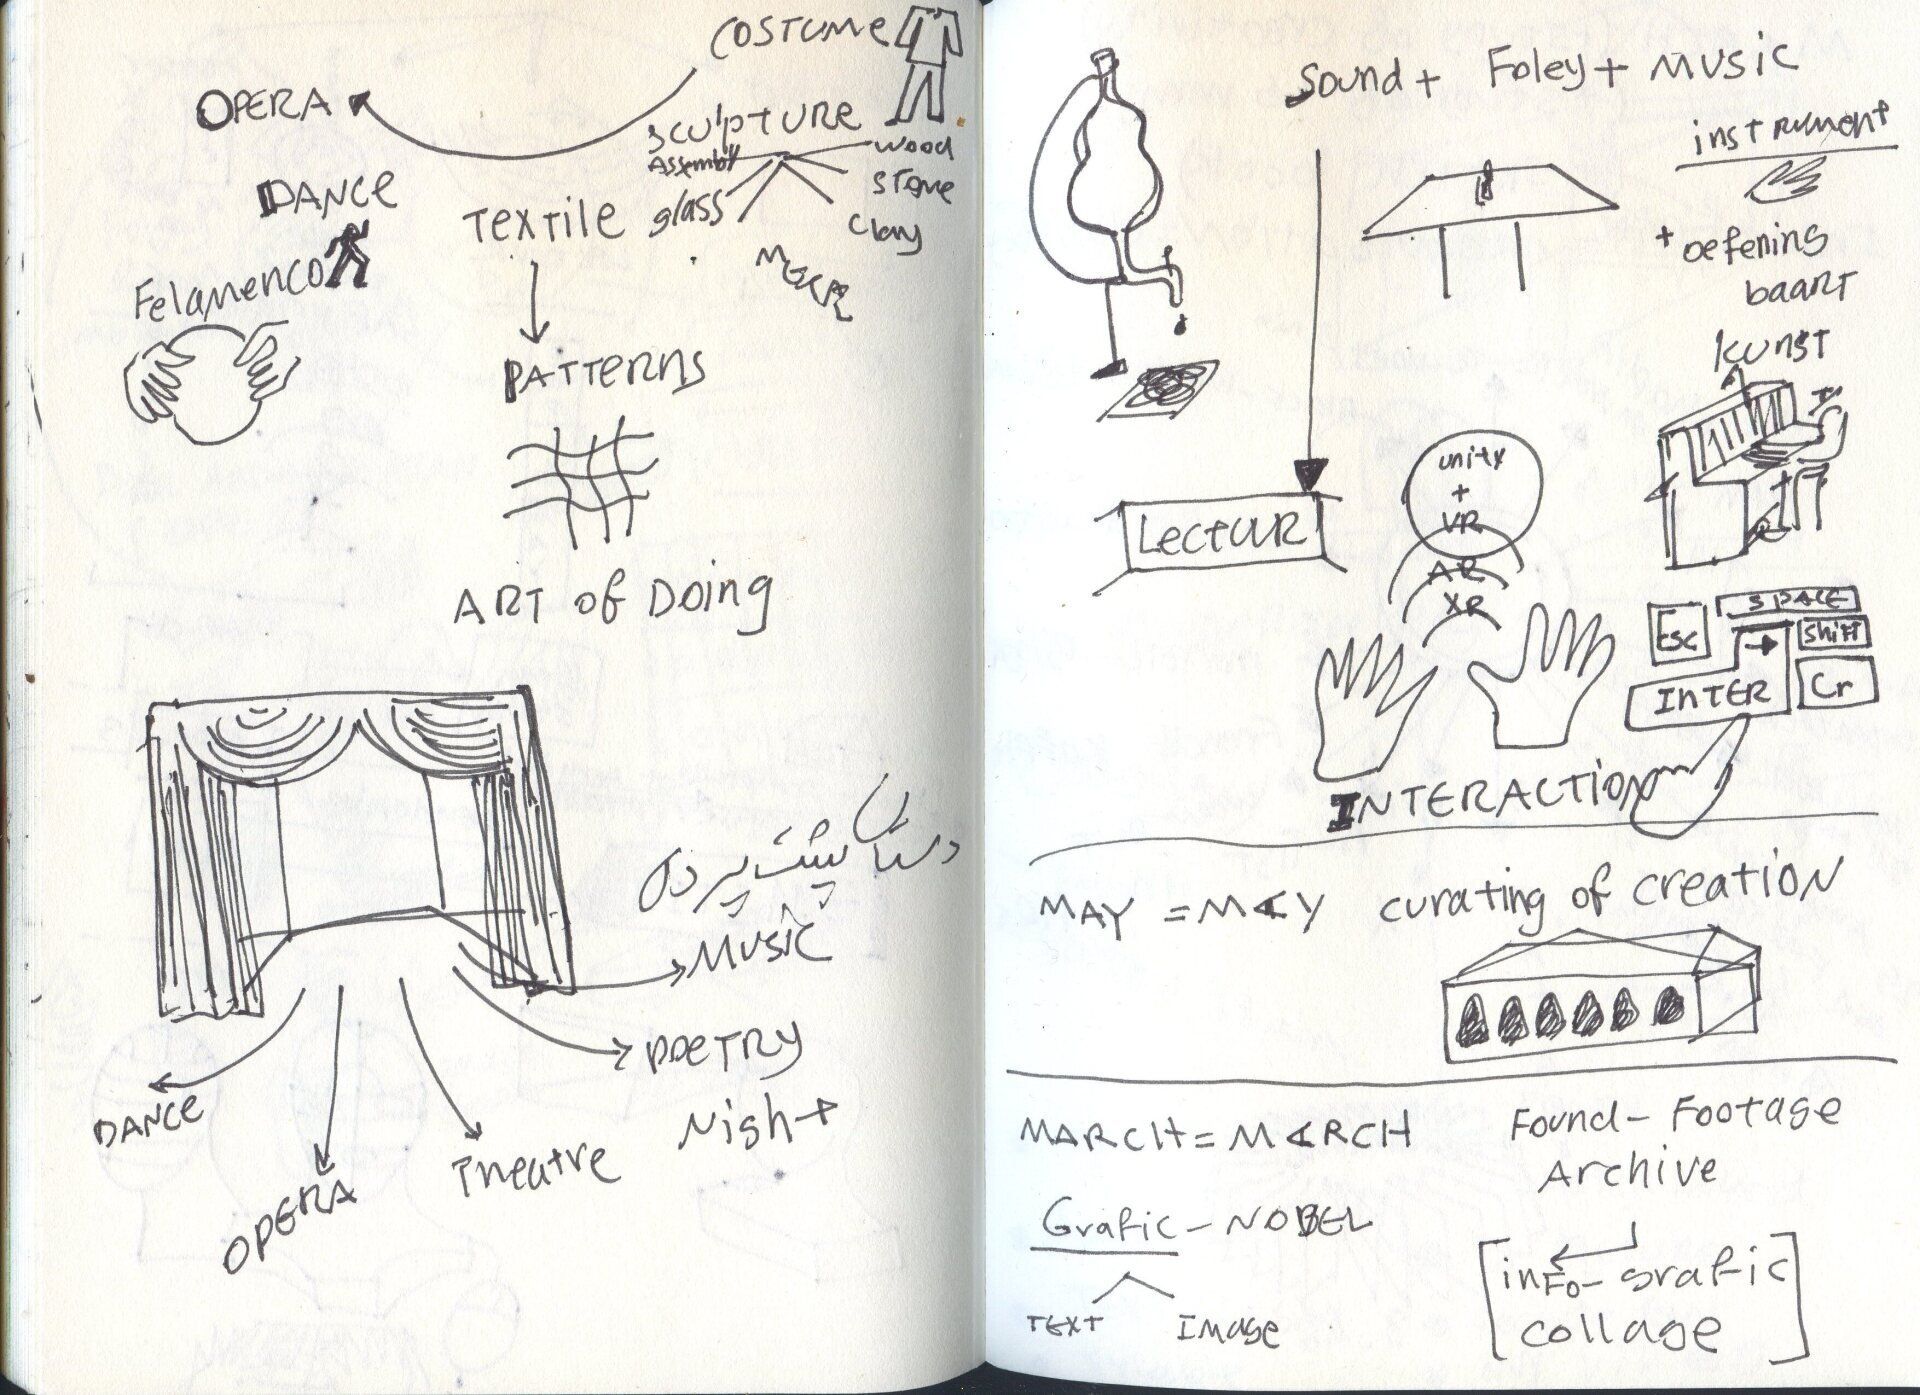 COSTUME
OPERA
SCULPTURE
Assembly
wood
stone
glass
Clay
DANCE
TEXTILE
Felamenco
PATTERNS
ART of Doing
پشت پرده
MUSIC
POETRY
Night
DANCE
Theatre
OPERA
Sound + Foley + MUSIC
instrument
+ oefening
baart
kunst
LectUUR
unity
+
VR
AR
XR
Esc
SPACE
Shift
INTER
Cr
INTERACTION
MAY = M∢Y curating of creation
MARCH = M∢RCH
Found - Footage
Archive
Grafic - NOBEL
TEXT
Image
info - grafic
collage